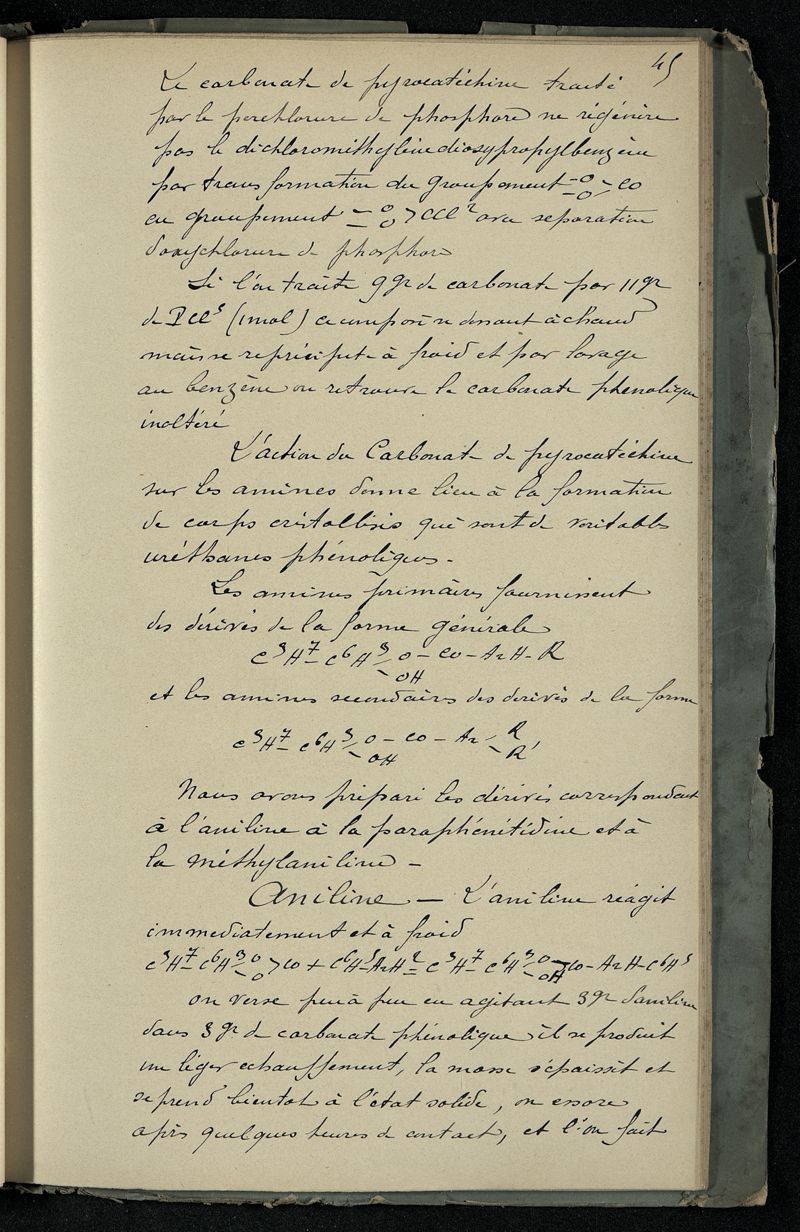 45
Le carbonate de pyrocatéchine traité
par le perchlorure de phosphore ne régénère
pas le dichlorométhylènedioxypropylbenzène
par transformation du groupement =O/O>CO
en groupement =O/O>CCl² avec separation
d'oxychlorure de phosphore
Si l'on traite 9gr de carbonate par 11gr
de PCl⁵ (1mol) ce composé se dissout à chaud
mais se reprécipite à froid et par lavage
au benzène on retrouve le carbonate phenolique
inaltéré
L'action du Carbonate de pyrocatéchine
sur les amines donne lieu à la formation
de corps cristallisés qui sont de veritables
uréthanes phénoliques -
Les amines primaires fournissent
des dérivés de la forme générale
C³H⁷-C⁶H³ O-CO-AzH-R
OH
et les amines secondaires des derivés de la forme
C³H⁷-C⁶H³ O-CO-Az R
OH R'
Nous avons préparé les dérivés correspondant
à l'aniline à la paraphénétidine et à
la méthylaniline -
Aniline - L'aniline réagit
immediatement et à froid
C³H⁷-C⁶H³ O/O>CO + C⁶H⁵AzH² = C³H⁷-C⁶H³ O/OH CO-AzH-C⁶H⁵
on verse peu à peu en agitant 3gr d'aniline
dans 3gr de carbonate phénolique il se produit
un léger echauffement, la masse s'épaissit et
se prend bientot à l'état solide, on essore
après quelques heures de contact, et l'on fait